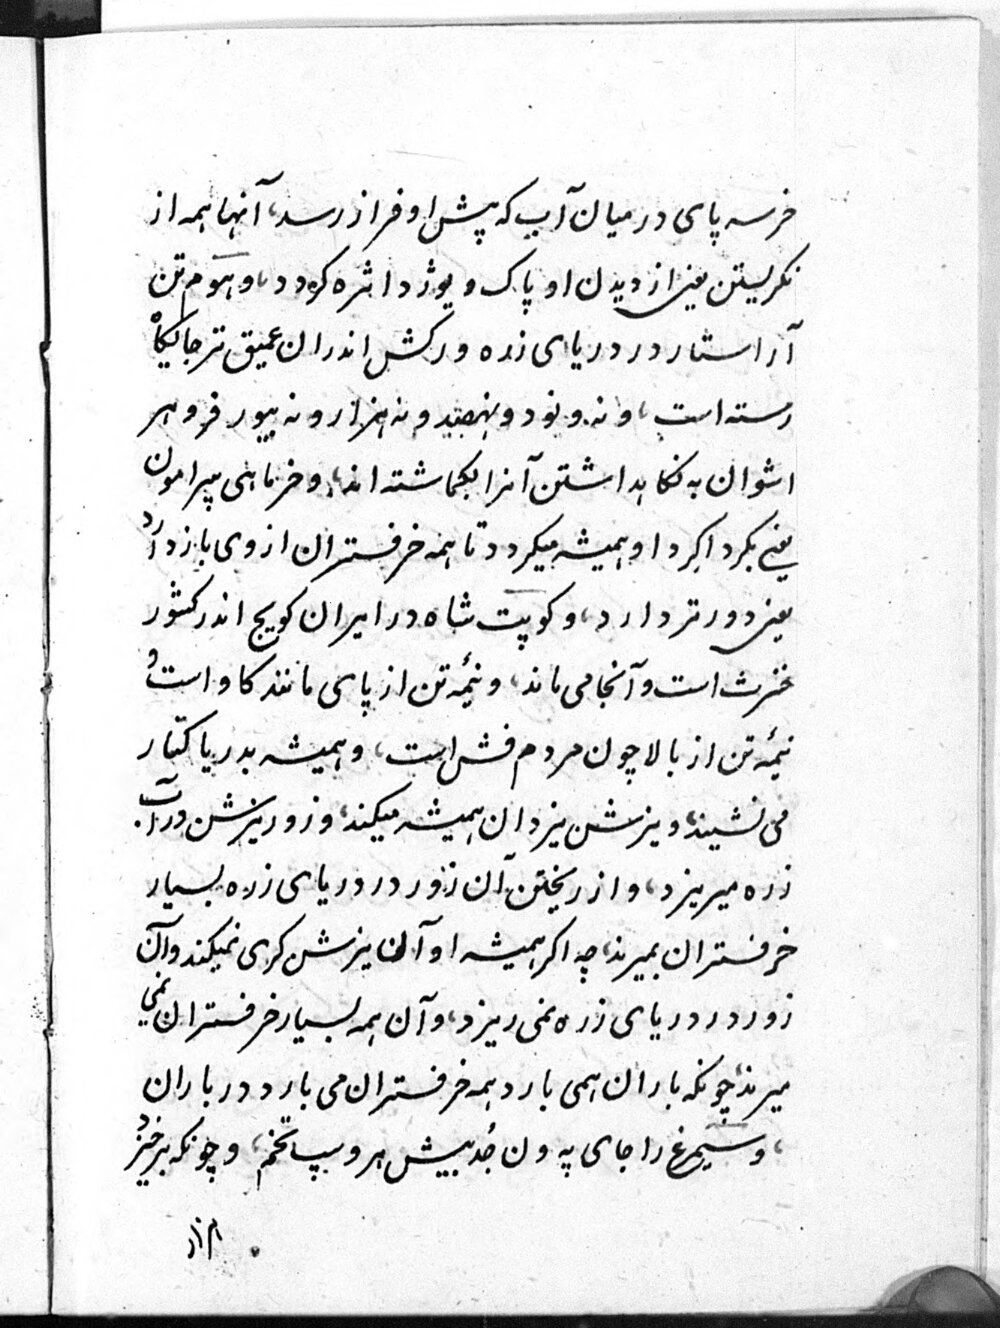 خر سه پای در میان آب که پیش او فراز رسد، آنها همه از
نکریستن یعنی از دیدن او پاک و یوژداثره کردد، و هوم تن
آراستار در دریای زره ورکش اندران عمیق تر جایکاه
رسته است، و نه و نود و نهصد و نه هزار و نه بیور فروهر
اشوان به نکاهداشتن آنرا بکماشته اند، و خر ماهی پیرامون
یعنی بکرداکرد او همیشه میکردد تا همه خرفستران از وی باز دارد
یعنی دورتر دارد، و کوپت شاه در ایران کویج اندر کشور
خنرث است و آنجا می ماند، و نیمهٔ تن از پای مانند کاو است و
نیمهٔ تن از بالا چون مردم فش است، و همیشه بدریا کنار
می نشیند، و یزشن یزدان همیشه میکند، و زور یزشن در آب
زره میریزد، و از ریختن آن زور در دریای زره بسیار
خرفستران بمیرند، چه اکر همیشه او آن یزشن کری نمیکند و آن
زور در دریای زره نمی ریزد، و آن همه بسیار خرفستران نمی
میرند، چونکه باران همی بارد همه خرفستران می بارد در باران
، و سیمرغ را جای په ون جُد بیش هروسپ تخم، و چونکه برخیزد